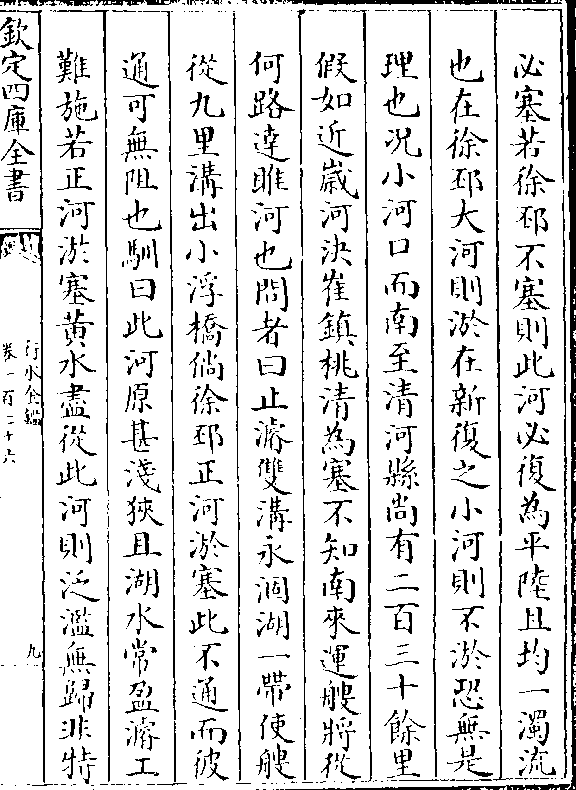 必塞若徐邳不塞則此河必復為平陸且均一濁流
也在徐邳大河則淤在新復之小河則不淤恐無是
理也况小河口而南至清河縣尚有二百三十餘里
假如近歲河決崔鎮桃清為塞不知南來運艘將從
何路達睢河也問者曰止濬雙溝永涸湖一帶使艘
從九里溝出小浮橋倘徐邳正河淤塞此不通而彼
通可無阻也馴曰此河原甚淺狹且湖水常盈濬工
難施若正河淤塞黄水盡從此河則泛濫無歸非特
欽定四庫全書
行水金鑑
卷一百二十六
九